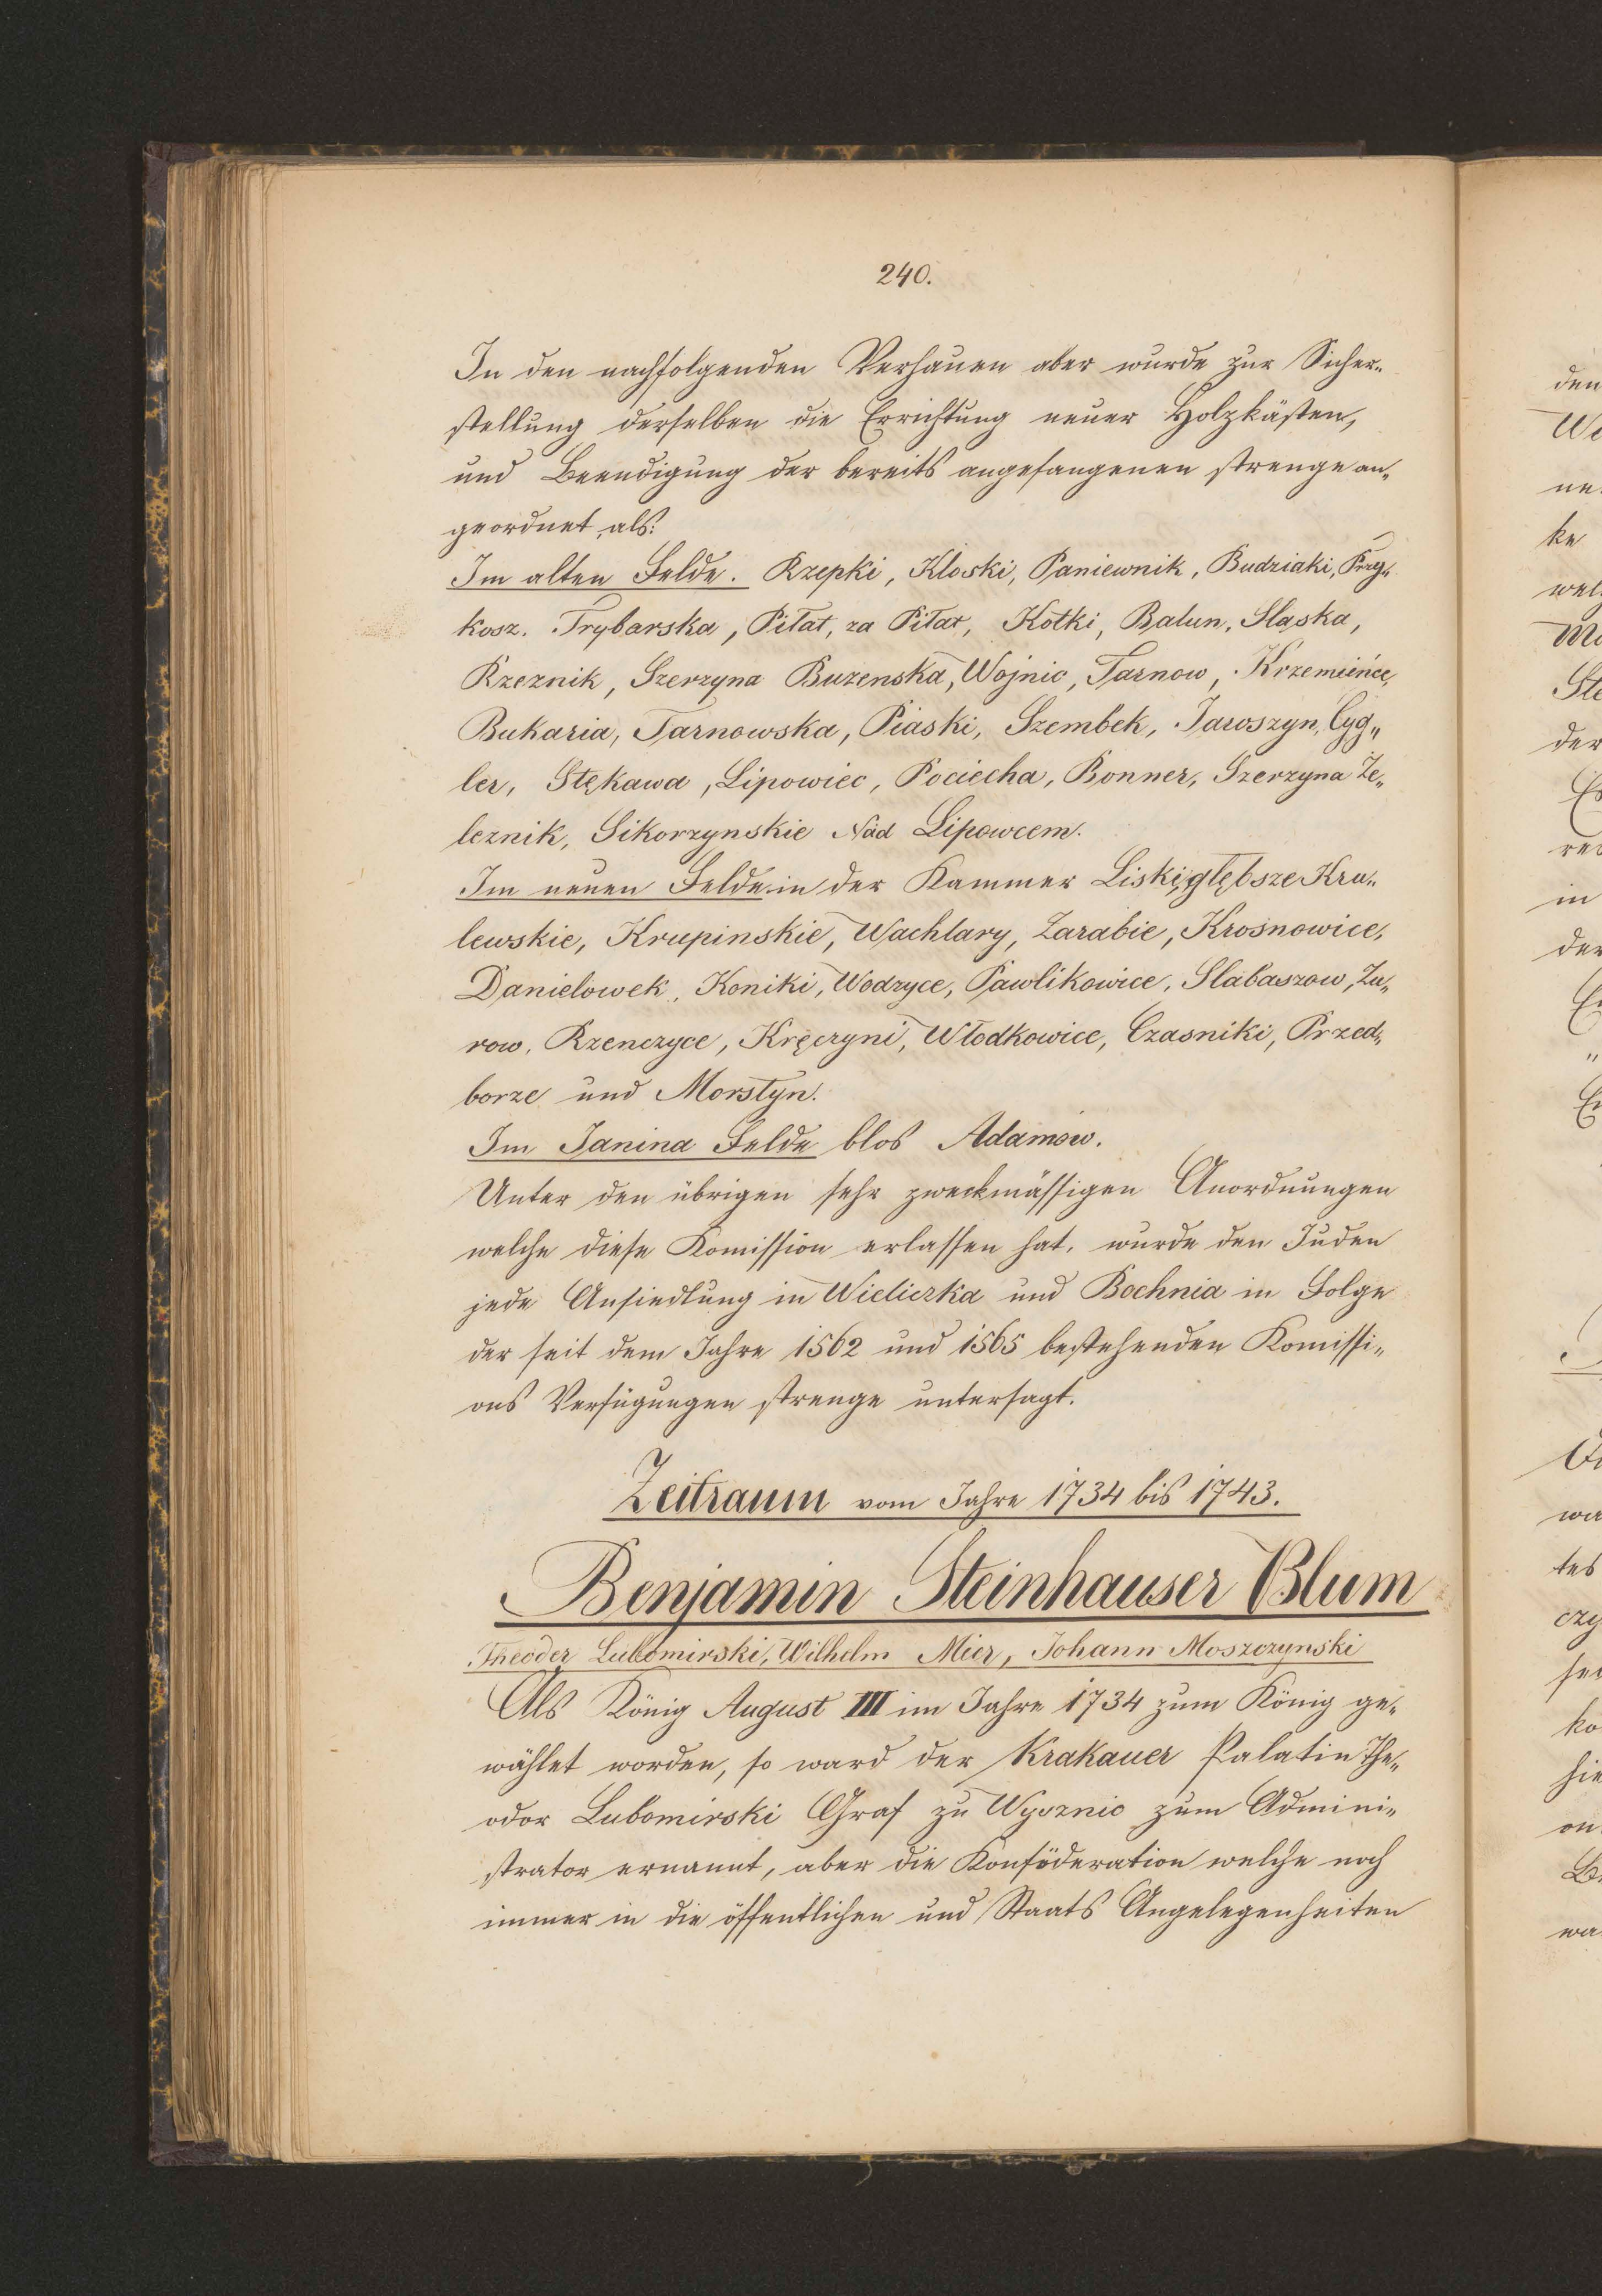 240.
In den nachfolgenden Verhauen aber wurde zur Sicher„
stellung derselben die Errichtung neuer Holzkästen,
und Beendigung der bereits angefangenen strenge an„
geordnet, als:
Im alten Felde. Rzepki, Kloski, Paniewnik, Budziaki, Przy„
kosz. Trybarska, Pitat, za Pitat, Kotki, Balun, Slaska,
Rzeznik, Szerzyna Buzenska, Wojnic, Tarnow, Krzemeińce,
Bukaria, Tarnowska, Piaski, Szembek, Jaroszyn, Cyg„
ler, Stękawa, Lipowiec, Pociecha, Bonner, Szerzyna Że„
leznik, Sikorzynskie Nad Lipowcem.
Im neuen Felde in der Kammer Liski, głębsze Kru„
lewskie, Krupinskie, Wachlary, Zarabie, Krosnowice,
Danielowek, Koniki, Wodzyce, Pawlikowice, Slabaszow, Zu„
row, Rzenczyce, Kręczyni, Włodkowice, Czasniki, Przed„
borze und Morstyn.
Im Janina Felde blos Adamów.
Unter den übrigen sehr zweckmässigen Anordnungen
welche diese Komission erlassen hat, wurde den Juden
jede Ansiedlung in Wieliczka und Bochnia in Folge
der seit dem Jahre 1562 und 1565 bestehenden Komissi„
ons Verfügungen strenge untersagt.
Zeitraum vom Jahre 1734 bis 1743.
Benjamin Steinhauser Blum
Theoder Lubomirski, Wilhelm Mier, Johann Moszczynski
Als König August III im Jahre 1734 zum König ge„
wählet worden, so ward der Krakauer Palatin The„
odor Lubomirski Graf zu Wysznic zum Admini„
strator ernannt, aber die Konföderation welche noch
immer in die öffentlichen und Staats Angelegenheiten